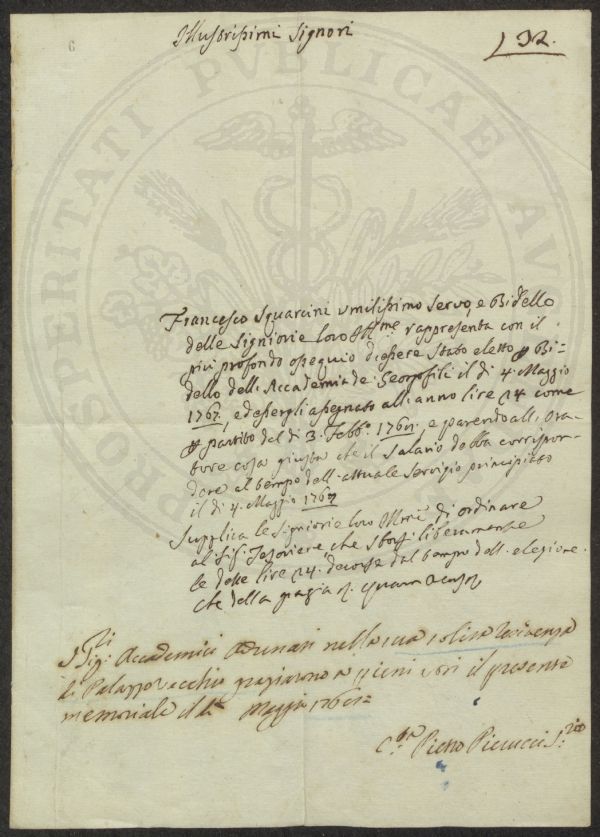 6
Illustrissimi Signori
132.
PROSPERITATI PVBLICAE AVG
Francesco Squarcini umilissimo servo, e Bidello
delle Signiorie loro Ill:me rappresenta con il
più profondo ossequio d'essere stato eletto p Bi=
dello dell. Accademia de Georgofili il di 4. Maggio
1767. ed essergli assegnato all. anno lire 24 come
p partito del di 3. Febb.o e parendo all. Ora=
tore cosa giusta che il salario debba corrispon=
dere al tempo dell. attuale servigio principiato
il di 4. Maggio 1767
Supplica le Signiorie loro Ill:me di ordinare
al Sig. Tesoriere, che sborsi liberamente
le dette lire 24. decorse dal tempo dell. elezione.
che della grazia q. quam Deus q
I Sig:ri Accademici Adunati nella sua solita residenza
di Palazzo Vecchio graziarono a pieni voti il presente
memoriale Maggio
Pietro Pierucci S:rio